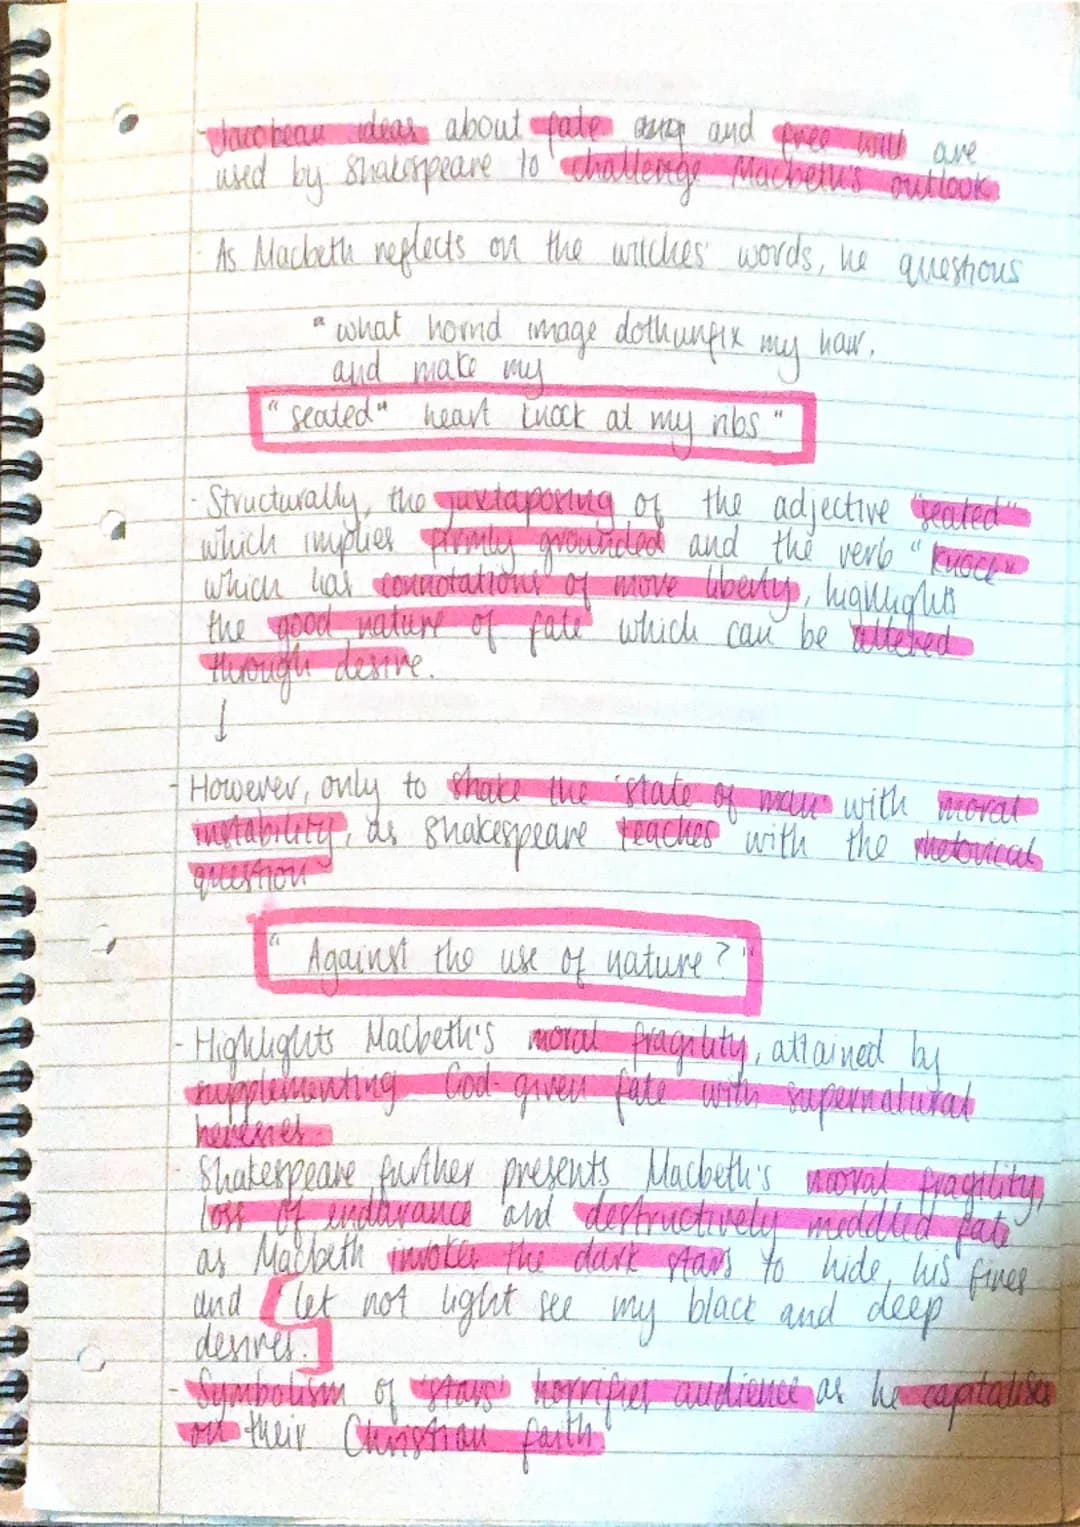 - Jacobean ideas about fate and and free will are
used by Shakespeare to challenge Macbeth's outlook
- As Macbeth reflects on the witches' words, he questions
"what horrid image doth unfix my hair,
and make my
"seated" heart knock at my ribs"
- Structurally, the juxtaposing of the adjective "seated"
which implies firmly grounded and the verb "knock"
which has connotations of move liberty, highlights
the good nature of fate which can be altered
through desire.
↓
- However, only to shake the 'state of man' with moral
instability, as Shakespeare teaches with the rhetorical
question
"Against the use of nature?"
- Highlights Macbeth's moral fragility, attained by
supplementing God-given fate with supernatural
heresies.
- Shakespeare further presents Macbeth's moral fragility,
loss of endurance and destructively meddled fate
as Macbeth invokes the dark stars to hide, his fires
and [let not light see my black and deep
desires.]
- Symbolism of 'stars' horrifies audience as he capitalises
on their Christian faith